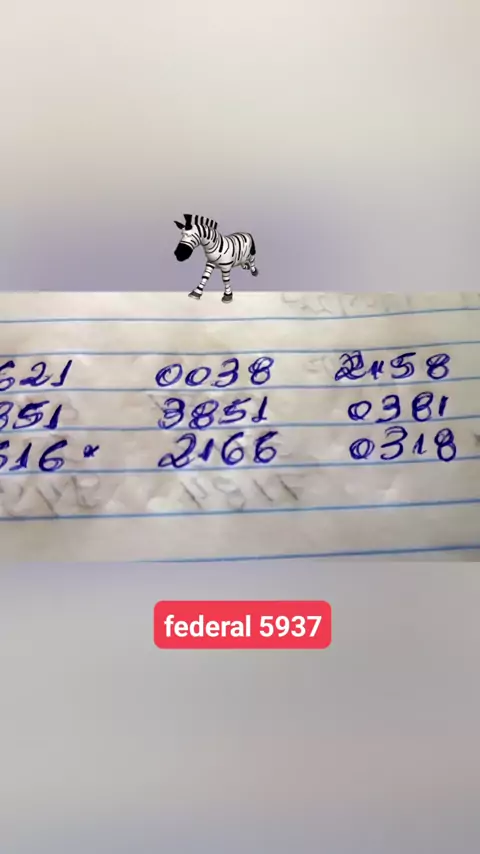 621 0038 2158
351 3851 0381
616 × 2166 0318
federal 5937